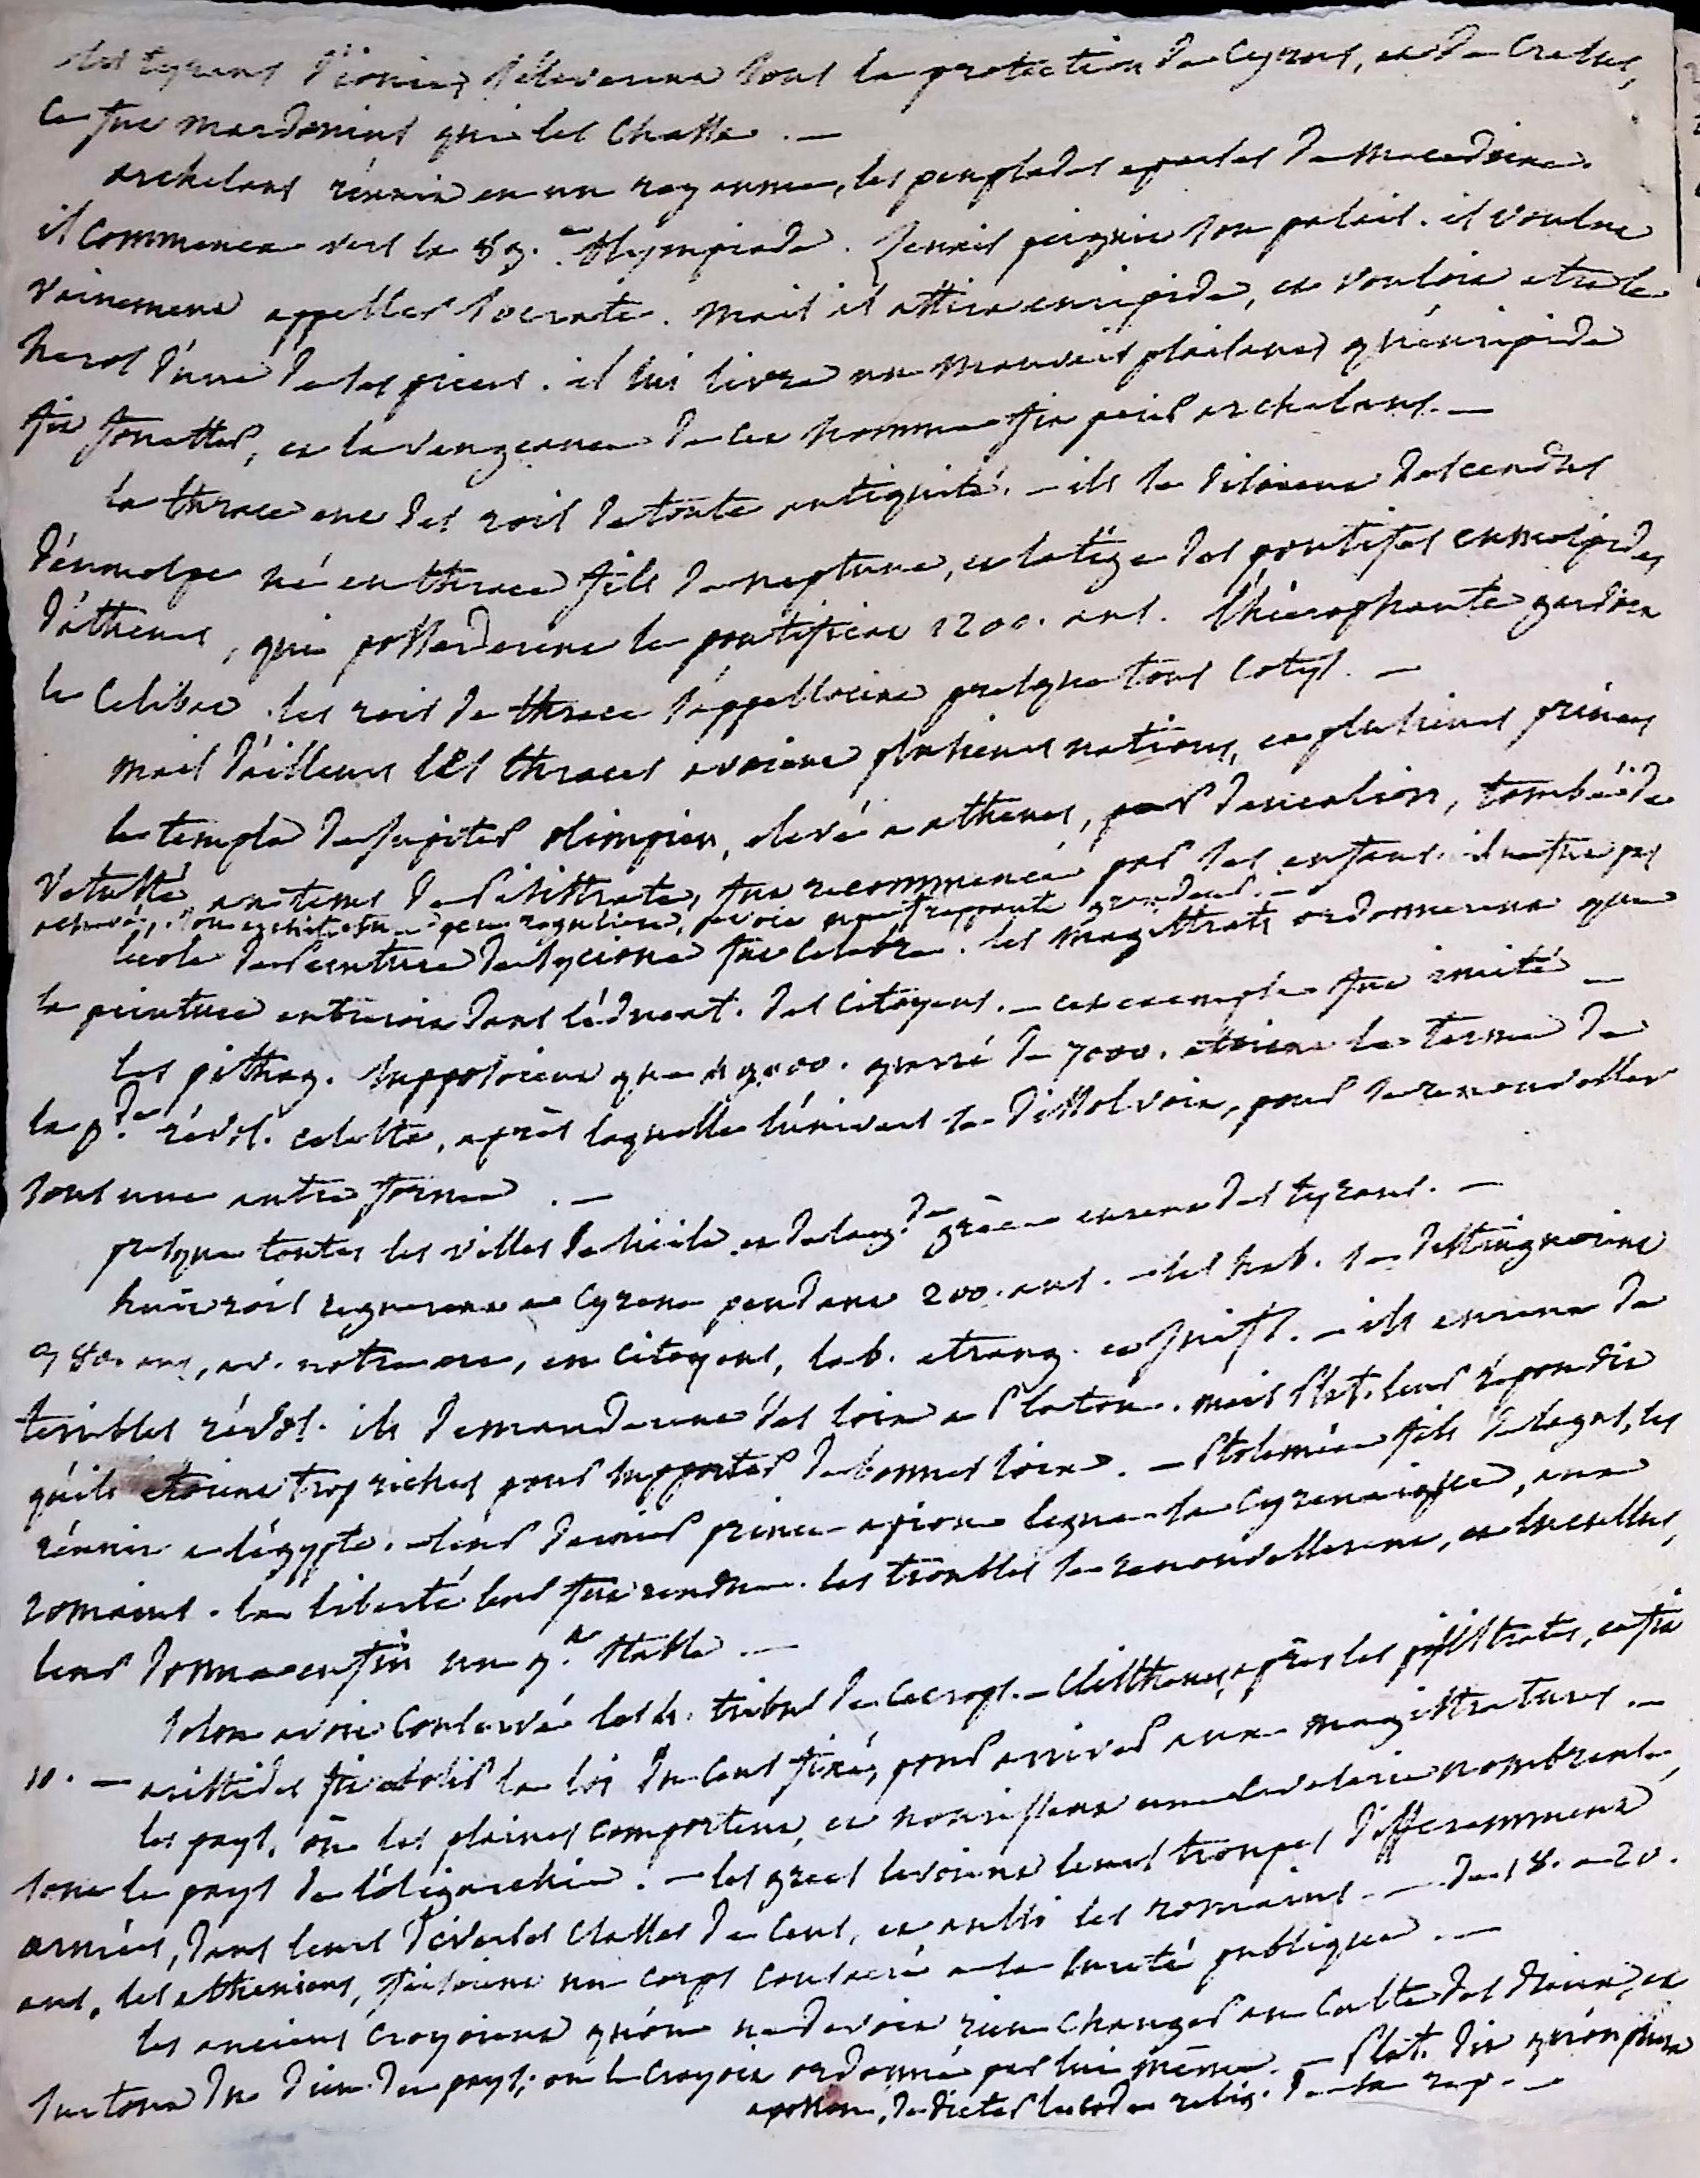 les tyrans d'ionie, s'éleverent sous la protection de Cyrus, et de Cresus,
ce fut mardonius qui les chassa. —
archelaus réunit en un royaume, les peuplades eparses de macedoine.
il commença vers la 89.e olympiade. Zeuxis peignit son palais. il voulut
vainement appeller socrate. mais il attira euripide, et vouloit etre le
heros d'une de ses pieces. il lui livra un mauvais plaisant qu'euripide
fit fouetter, et la vengeance de cet homme fit perir archelaus. —
la thrace eut des rois de toute antiquité. — ils se disoient descendus
d'eumolpe né en thrace fils de neptune, et la tige des pontifes eumolpides
d'athenes, qui possederent le pontificat 1200. ans. l'hierophante gardoit
le celibat. les rois de thrace s'appelloient presque tous cotys. —
mais d'ailleurs les thraces avoient plusieurs nations, et plusieurs princes
le temple de Jupiter olimpien, elevé a athenes, par deucalion, tombé de
vetusté, au tems de Pisistrate, fut recommencé par ses enfans. il ne fut pas
achevé, son architecture peu reguliere, avoit une frappante grandeur. —
l'ecole de Peinture de sycione fut celebre. les magistrats ordonnerent que
la peinture entreroit dans l'éducat. des citoyens. — cet exemple fut imité —
les pithag. supposoient que 49000. quarré de 7000. etoient le terme de
la g.de révol. celeste, après laquelle l'univers se dissolvoit, pour se renouveller
sous une autre forme. —
presque toutes les villes de sicile et de la g.de grèce eurent des tyrans. —
huit rois regnerent a Cyrene pendant 200. ans. — les hab. se distinguoient
980. ans, av. notre ere, en citoyens, lab. etrang. et Juifs. — ils eurent de
terribles révol. ils demanderent des loix a Platon. mais Plat. leur répondit
qu'ils etoient trop riches pour supporter de bonnes loix. — Ptolemée fils de lagus, les
réunit a l'égypte. leur dernier prince apion legua la cyrenaique, aux
romains. la liberté leur fut rendue. les troubles se renouvellerent, et lucullus,
leur donna enfin un g.t stable —
solon avoit conservé les 4. tribus de cecrops. — Clisthenes, après les pisistrates, en fit
10. — aristides fit abolir la loi du cens fixé, pour arriver aux magistratures. —
les pays, où les plaines comportent, et nourissent une cavalerie nombreuse,
sont le pays de l'oligarchie. — les grecs levoient leurs troupes differemment
armées, dans leurs diverses classes de cens, et aussi les romains. — de 18. a 20.
ans, les atheniens, faisoient un corps consacré a la sureté publique. —
les anciens croyoient qu'on ne devoit rien changer au culte des dieux, et
surtout du dieu du pays; on le croyoit ordonné par lui même. — Plat. dit qu'on
apollon, de dicter le code relig. de sa rep. —